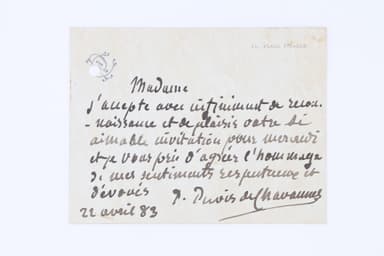 Madame
J'accepte avec infiniment de recon-
-naissance et de plaisir votre si
aimable invitation pour mercredi
et je vous prie d'agréer l'hommage
de mes sentiments respectueux et
dévoués
P. Puvis de Chavannes
22 avril 83